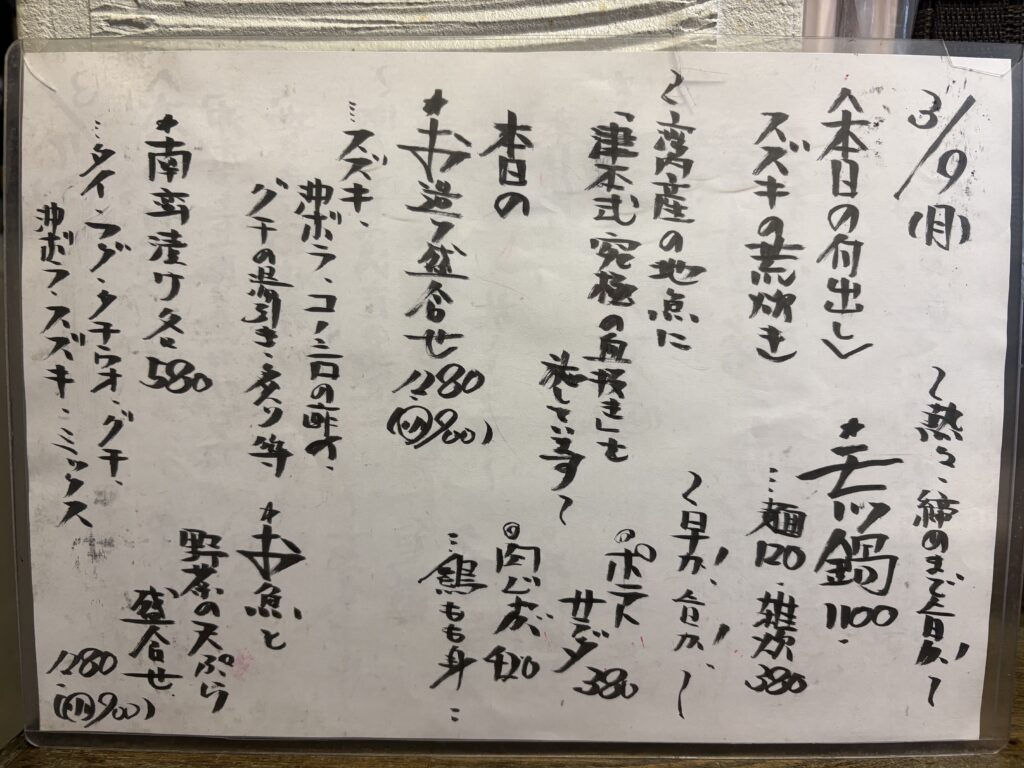 3/9(月)
〈本日の付出し〉
スズキの荒炊き
〜宮内産の地点に
「津本式 究極の血抜き」を
施しています〜
本日の
★お造り盆合せ 1280
(小900)
…スズキ、
沖ボラ、コノシロの酢〆、
グチの湯引き・炙り等
★南蛮漬け各580
…タイ・フグ・タチウオ・グチ、
沖ボラ・スズキ・ミックス
〜熱々、締めまで旨か!〜
★モツ鍋
1100
…麺120・雑炊380
〜早か!旨か!〜
◎ポテト
サラダ
380
◎肉じゃが 420
…鶏もも身…
★お魚と
野菜の天ぷら
盛合せ
1280
(小900)